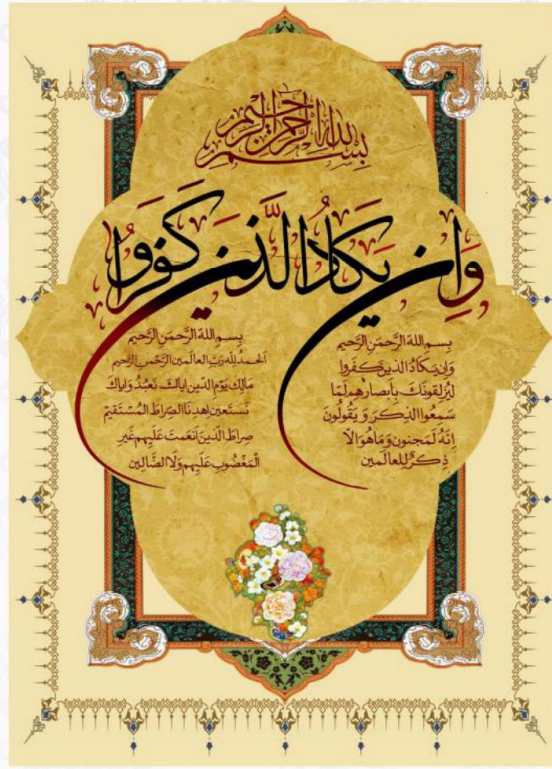 بِسْمِ اللهِ الرَّحْمنِ الرَّحیمِ
وَاِن یَكَادُ الَّذینَ كَفَرَوُا
بِسمِ اللهِ الرَّحمَنِ الرَّحیمِ
وَاِن یَكَادُ الذینَ كَفَروا
لیُزلِقونَكَ بِاَبصارِهِم لَمّا
سَمعُوا الذِكرَ وَ یَقُولُونَ
اِنَّهُ لَمَجنون وَ مَا هُوَ اِلّا
ذِكرٌ لِلعالَمین
بِسمِ اللهِ الرَّحمَنِ الرَّحیمِ
اَلحَمدُ لِلّهِ رَبِّ العالَمین الرَّحمَنِ الرَّحیمِ
مَالِكِ یَومِ الدّینِ اِیاكَ نَعبُدُ وَ اِیاكَ
نَستَعین اِهدِنَا الصِراطَ المُستَقیمَ
صِراطَ الَّذینَ اَنعَمتَ عَلَیهِم غَیرِ
المَغضُوبِ عَلَیهِم وَلَا الضَّالین